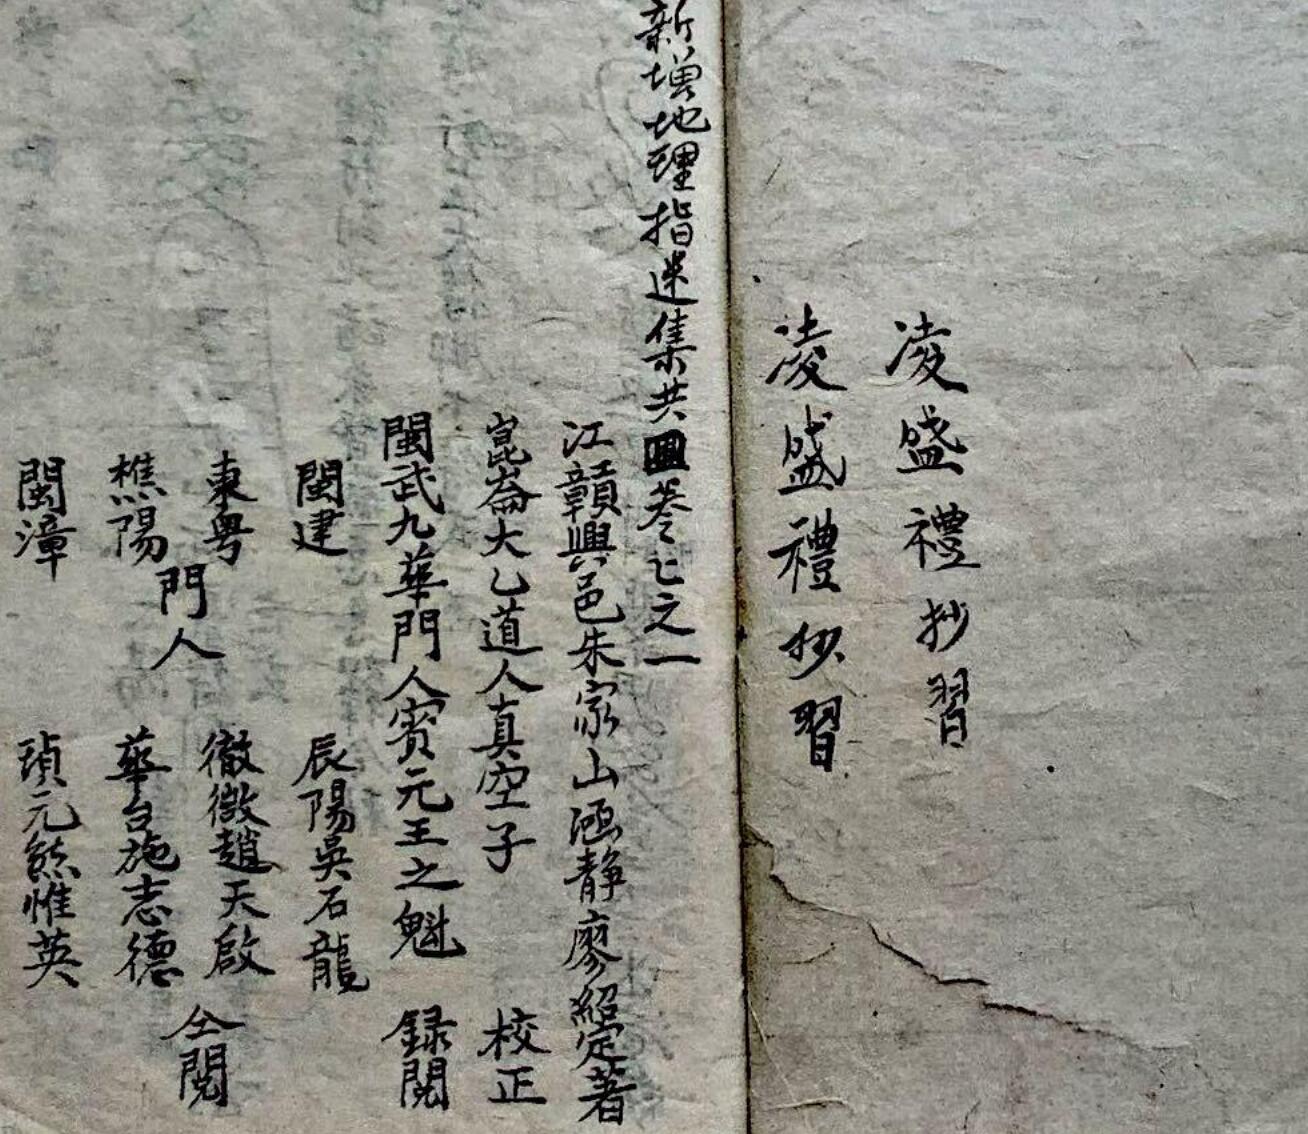 凌盛禮抄習
凌盛禮抄習
新增地理指迷集共四卷之一
江贛興邑朱家山涵静廖紹定著
崑崙大乙道人真空子 校正
閩武九華門人賓元王之魁 録閲
閩建 辰陽吳石龍
東粤 徹徵趙天啟
門人 仝閲
樵陽 華台施志德
閩漳 瑱元熊惟英